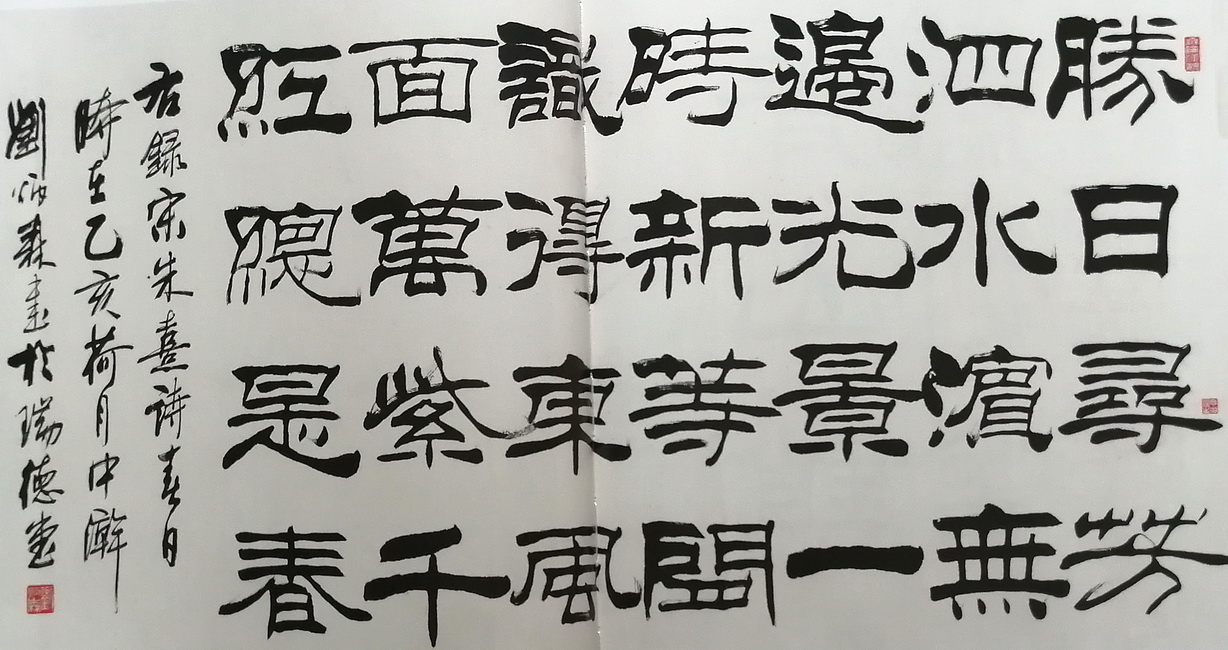 勝日尋芳
泗水濱無
邊光景一
時新等閒
識得東風
面萬紫千
紅總是春
右録宋朱熹詩春日
時在乙亥荷月中澣
劉炳森書於瑞德堂